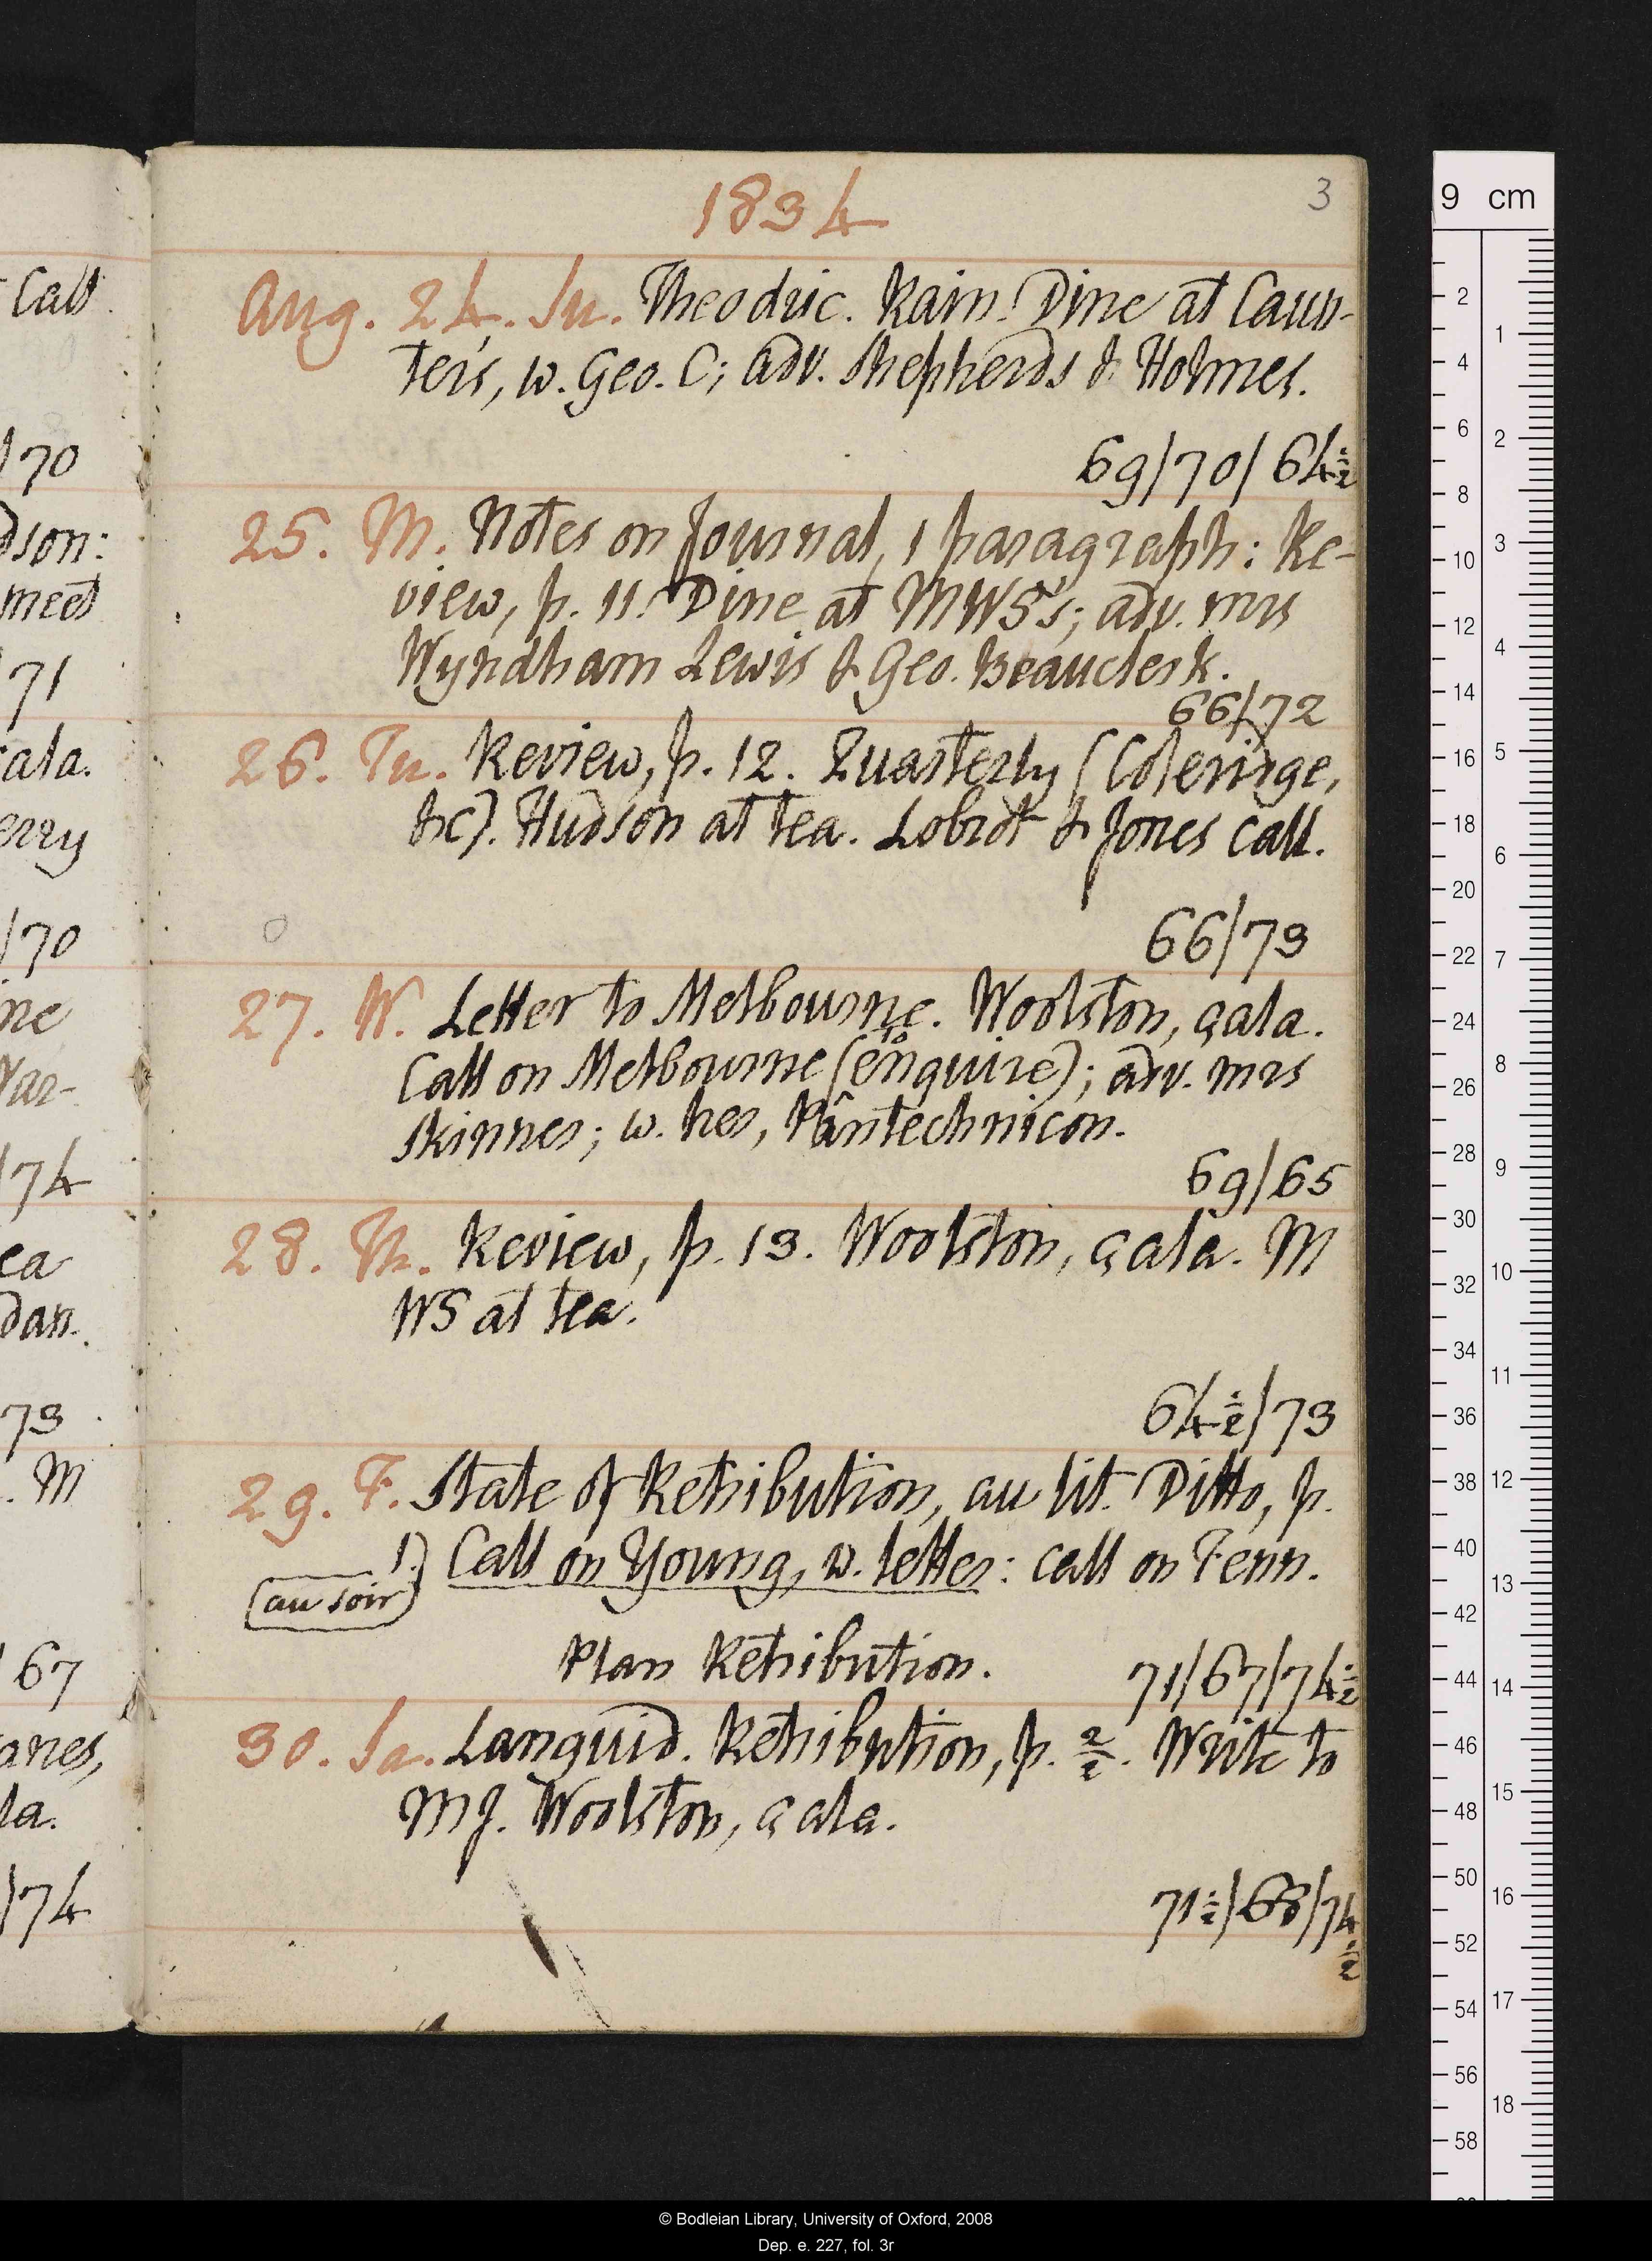 1834
3
Aug. 24. Su. Theodric. Rain. Dine at Caun-
ter's, w. Geo. C; adv. Shepherds & Holmes.
69/70/64½
25. M. Notes on Journal, 1 paragraph: Re-
view, p. 11. Dine at MWS's; adv. mrs
Wyndham Lewis & Geo. Beauclerk.
66/72
26. Tu. Review, p. 12. Quarterly (Coleridge,
&c). Hudson at tea. Lobrot & Jones call.
66/73
27. W. Letter to Melbourne. Woolston, çala.
Call on Melbourne (to enquire); adv. mrs
Skinner; w. her, Pantechnicon.
69/65
28. Th. Review, p. 13. Woolston, çala. M
WS at tea.
64½/73
29. F. State of Retribution, au lit. Ditto, p.
1.) Call on Young, w. letter: call on Fenn.
(au soir)
Plan Retribution.
71/67/74½
30. Sa. Languid. Retribution, p. 2/2. Write to
MJ. Woolston, çala.
71½/68/74½
Call
/70
dson:
meet
71
çala.
erry
/70
ne
Yar-
/74
ea
dan.
73
. M
67
anes,
la.
/74
9 cm
2
4
6
8
10
12
14
16
18
20
22
24
26
28
30
32
34
36
38
40
42
44
46
48
50
52
54
56
58
1
2
3
4
5
6
7
8
9
10
11
12
13
14
15
16
17
18
© Bodleian Library, University of Oxford, 2008
Dep. e. 227, fol. 3r